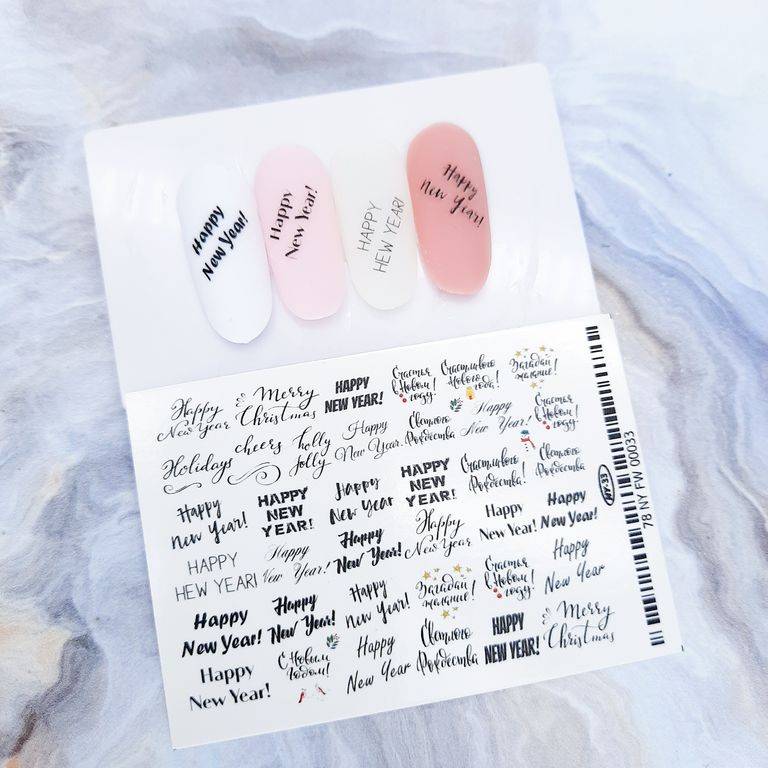 Happy
New Year!
Happy
New Year!
HAPPY
HEW YEAR!
Happy
New Year!
Happy
New Year
Merry
Christmas
HAPPY
NEW YEAR!
Счастья
в Новом
году!
Счастливого
Нового
года!
Загадай
желание!
Holidays
cheers
holly
jolly
Happy
New Year
Светлого
Рождества
Happy
New Year!
Счастья
в Новом
году!
Happy
New Year!
HAPPY
NEW
YEAR!
Happy
New Year
HAPPY
NEW
YEAR!
Счастливого
Рождества!
Светлого
Рождества
HAPPY
HEW YEAR!
Happy
New Year!
Happy
New Year!
Happy
New Year
Happy
New Year!
Happy
New Year!
Happy
New Year!
Happy
New Year!
Happy
New Year!
Загадай
желание!
Счастья
в Новом
году!
Happy
New Year
Happy
New Year!
С Новым
Годом!
Happy
New Year
Светлого
Рождества
HAPPY
NEW YEAR!
Merry
Christmas
78 NY FW 00033